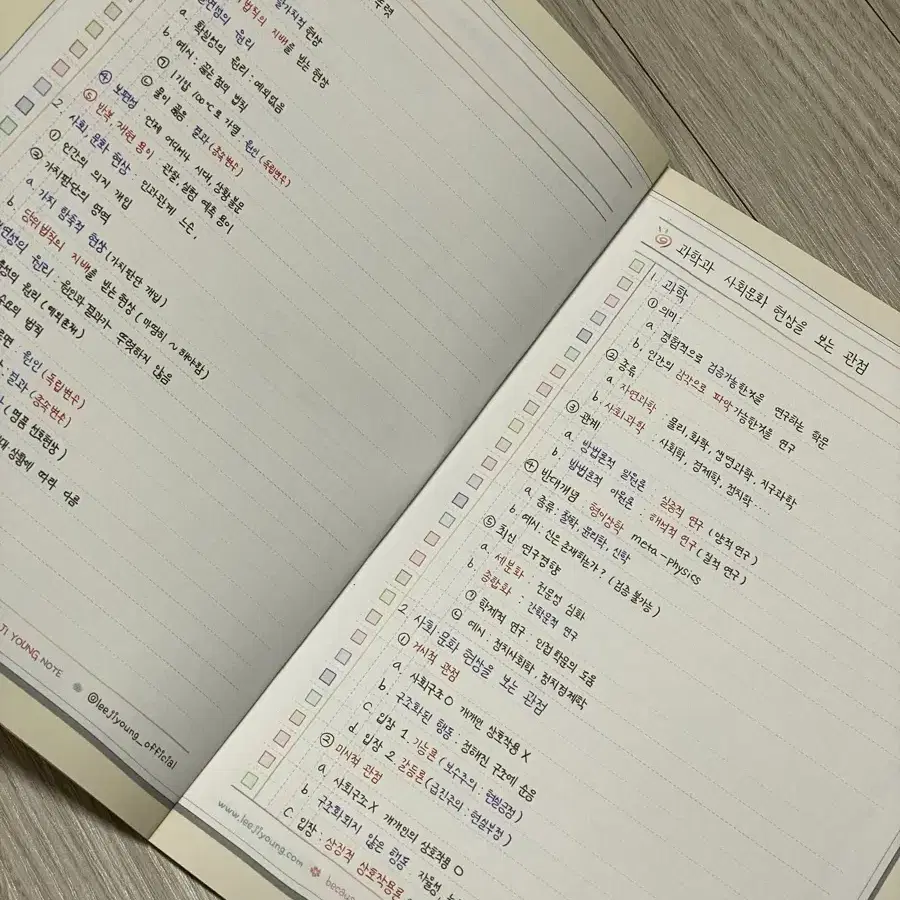 뚜렷
몰가치적 현상
법칙의 지배를 받는 현상
필연성의 원리
a. 확실성의 원리 : 예외없음
b. 예시 : 끓는점의 법칙
㉠ 1기압 100℃로 가열 : 원인 (독립변수)
㉡ 물이 끓음 : 결과 (종속변수)
④ 보편성 : 언제 어디서나 시대, 상황 불문
⑤ 반복, 재현 용이 : 관찰, 실험 예측 용이
2. 사회, 문화 현상 : 인과관계 느슨,
① 인간의 의지 개입
② 가치판단의 영역
a. 가치 함축적 현상 (가치판단 개입)
b. 당위법칙의 지배를 받는 현상 (마땅히 ~ 해야함)
개연성의 원리 : 원인과 결과가 뚜렷하지 않음
확률성의 원리 (예외존재)
수요의 법칙
오르면 : 원인 (독립변수)
: 결과 (종속변수)
(명품 선호현상)
시대 상황에 따라 다름
JI YOUNG NOTE @leejiyoung_official
과학과 사회문화 현상을 보는 관점
1. 과학
① 의미
a. 경험적으로 검증가능한것을 연구하는 학문
b. 인간의 감각으로 파악가능한것을 연구
② 종류
a. 자연과학 : 물리, 화학, 생명과학, 지구과학
b. 사회과학 : 사회학, 경제학, 정치학 ...
③ 관계
a. 방법론적 일원론 : 실증적 연구 (양적 연구)
b. 방법론적 이원론 : 해석적 연구 (질적 연구)
④ 반대개념 : 형이상학 meta-physics
a. 종류 : 철학, 윤리학, 신학
b. 예시 : 신은 존재하는가? (검증 불가능)
⑤ 최신 연구경향
a. 세분화 : 전문성 심화
b. 종합화 : 간학문적 연구
㉠ 학제적 연구 : 인접 학문의 도움
㉡ 예시 : 정치사회학, 정치경제학
2. 사회·문화 현상을 보는 관점
① 거시적 관점
a. 사회구조 O 개개인 상호작용 X
b. 구조화된 행동 : 정해진 구조에 순응
c. 입장 1. 기능론 (보수주의 : 현실긍정)
d. 입장 2. 갈등론 (급진주의 : 현실부정)
② 미시적 관점
a. 사회구조 X 개개인의 상호작용 O
b. 구조화되지 않은 행동 : 자율성,
c. 입장 : 상징적 상호작용론
www.leejiyoung.com